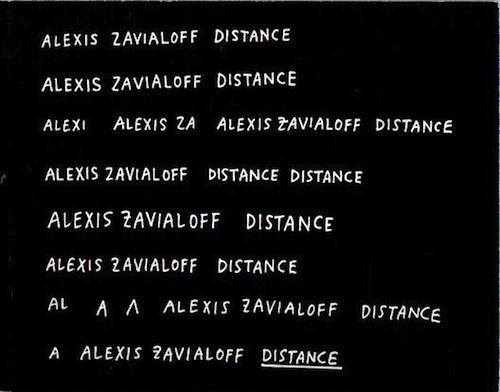 ALEXIS ZAVIALOFF DISTANCE
ALEXIS ZAVIALOFF DISTANCE
ALEXI ALEXIS ZA ALEXIS ZAVIALOFF DISTANCE
ALEXIS ZAVIALOFF DISTANCE DISTANCE
ALEXIS ZAVIALOFF DISTANCE
ALEXIS ZAVIALOFF DISTANCE
AL A Λ ALEXIS ZAVIALOFF DISTANCE
A ALEXIS ZAVIALOFF DISTANCE